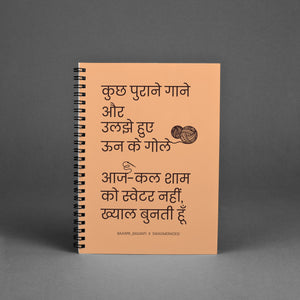 कुछ पुराने गाने
और
उलझे हुए
ऊन के गोले
आज-कल शाम
को स्वेटर नहीं,
ख्याल बुनती हूँ